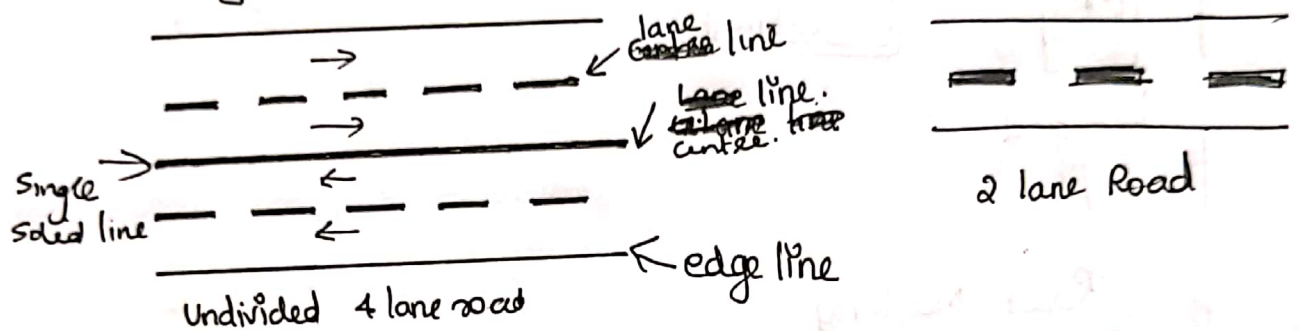 lane line
line.
centre.
Single
Solid line
edge line
Undivided 4 lane road
2 lane Road